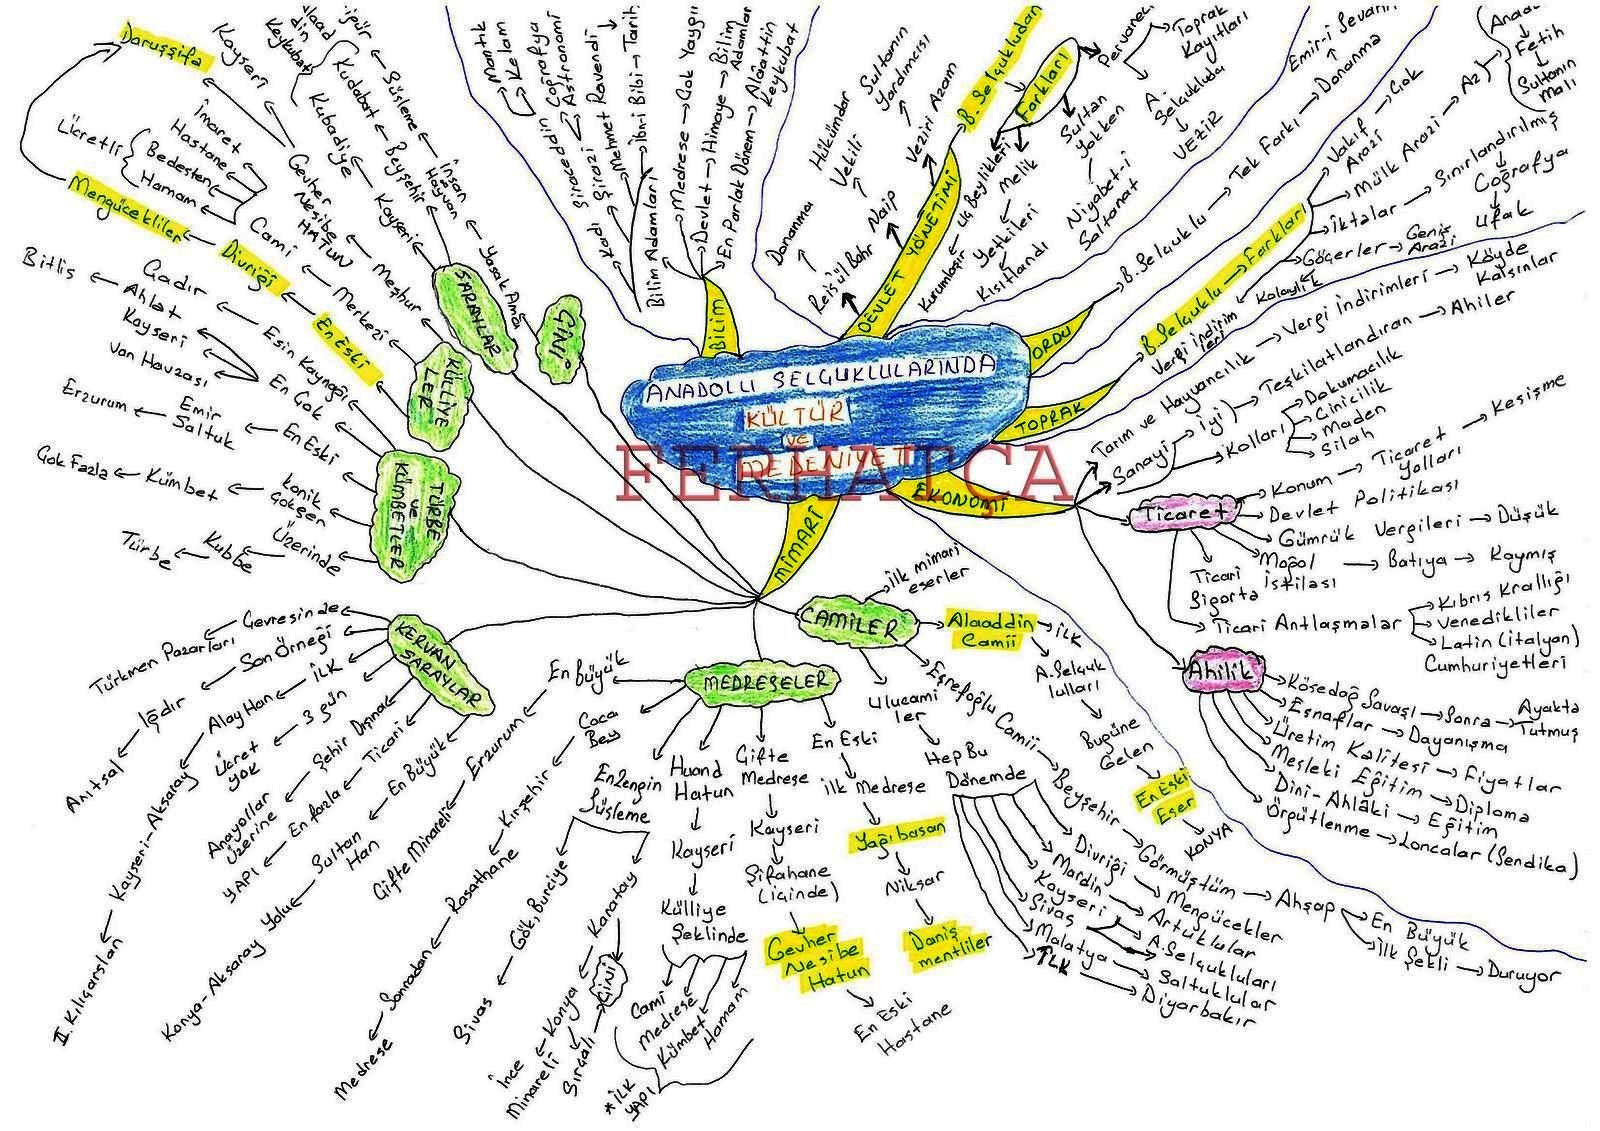 ANADOLU SELÇUKLULARINDA
KÜLTÜR
ve
MEDENİYET
FERHATCA
BİLİM
Bilim Adamları
Medrese → Çok Yaygın
Devlet → Himaye → Bilim
Adamları
En Parlak Dönem → Alâattin
Keykubat
İbn-i Bibi → Tarih
Mehmet Ravendi
Şirazi
Astronomi
Coğrafya
Kelam
Mantık
DEVLET YÖNETİMİ
Veziri Azam
Sultanın
Yardımcısı
Naip
Hükümdar
Vekili
Reisül Bahr
Donanma
B. Selçukludan
Farkları
Pervaneci
Toprak
Kayıtları
A.
Selçukluda
VEZİR
Sultan
Yokken
Niyabet-i
Saltanat
Melik
Yetkileri
Kısıtlandı
Uç Beylikleri
ORDU
B. Selçuklu → Tek Farkı → Donanma
TOPRAK
B. Selçuklu → Farkları
Vakıf
Arazi
Çok
Mülk Arazi → Az
Fetih
Sultanın
Malı
İktalar → Sınırlandırılmış
Coğrafya
Ufak
Göçerler → Geniş
Arazi
Kolaylık
Vergi İndirim
leri
EKONOMİ
Tarım ve Hayvancılık → Vergi indirimleri → Köyde
Kalsınlar
Sanayi → iyi → Teşkilatlandıran → Ahiler
Kolları
Dokumacılık
Çinicilik
Maden
Silah
Ticaret
Konum → Ticaret
Yolları
Kesişme
Devlet Politikası
Gümrük Vergileri → Düşük
Moğol
İstilası
Batıya → Kaymış
Ticari
Sigorta
Ticari Antlaşmalar
Kıbrıs Krallığı
Venedikliler
Latin (italyan)
Cumhuriyetleri
Ahilik
Kösedağ Savaşı → Sonra → Ayakta
Tutmuş
Esnaflar → Dayanışma
Üretim Kalitesi → Fiyatlar
Mesleki Eğitim → Diploma
Dini-Ahlâki → Eğitim
Örgütlenme → Loncalar (Sendika)
MİMARİ
CAMİLER
İlk mimari
eserler
Alaaddin
Camii
İLK
A.Selçuk
lulları
Bugüne
Gelen
En Eski
Eser
KONYA
Eşrefoğlu Camii
Beyşehir → Görmüştüm → Ahşap
En Büyük
İlk Şekli → Duruyor
Ulucami
ler
Hep Bu
Dönemde
Divriği → Mengücekler
Mardin → Artuklular
Kayseri
Sivas
A.Selçukluları
Malatya → Saltuklular
İLK → Diyarbakır
MEDRESELER
En Büyük
Erzurum
Çifte Minareli
Caca
Bey
Kırşehir
Rasathane
Sonradan
Medrese
En Zengin
Süsleme
Gök, Burciye
Sivas
Karatay
ÇİNİ
Konya
İnce
Minareli
Sırçalı
Huand
Hatun
Kayseri
Külliye
Şeklinde
Cami
Medrese
Kümbet
Hamam
*İLK
YAPI
Çifte
Medrese
Kayseri
Şifahane
(içinde)
Gevher
Nesibe
Hatun
En Eski
Hastane
En Eski
İlk Medrese
Yağıbasan
Niksar
Daniş
mentliler
KERVAN
SARAYLAR
Çevresinde
Türkmen Pazarları
Son Örneği
Iğdır
Anıtsal
İLK
Alay Han
Kayseri-Aksaray
II. Kılıçarslan
3 gün
Ücret
Yok
Şehir Dışına
Anayollar
Üzerine
Ticari
En fazla
YAPI
En Büyük
Sultan
Han
Konya-Aksaray Yolu
TÜRBE
ve
KÜMBETLER
Esin Kaynağı
Çadır
En Çok
Ahlat
Bitlis
Kayseri
Van Havzası
En Eski
Emir
Saltuk
Erzurum
Konik
Gökçen
Kümbet
Çok Fazla
Üzerinde
Kubbe
Türbe
KÜLLİYE
LER
Meşhur
Gevher
Nesibe
HATUN
Kayseri
Daruşşifa
Merkezi
Cami
İmaret
Hastane
Bedesten
Hamam
Ücretli
En Eski
Divriği
Mengücekliler
SARAYLAR
Kayseri
Kubadiye
Beyşehir
Kubabat
Keykubat
Süsleme
İnsan
Hayvan
ÇİNİ
Yasak Ama